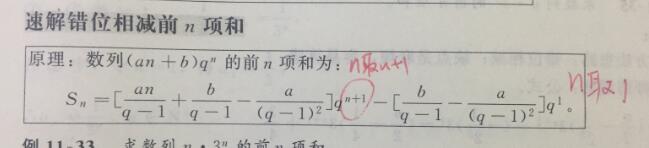 速解错位相减前 n 项和
原理：数列(an+b)qⁿ 的前 n 项和为： n取n+1
Sₙ=[an/(q-1)+b/(q-1)-a/(q-1)²]qⁿ⁺¹-[b/(q-1)-a/(q-1)²]q¹。 n取1
例 11-33 求数列 n·3ⁿ 的前 n 项和